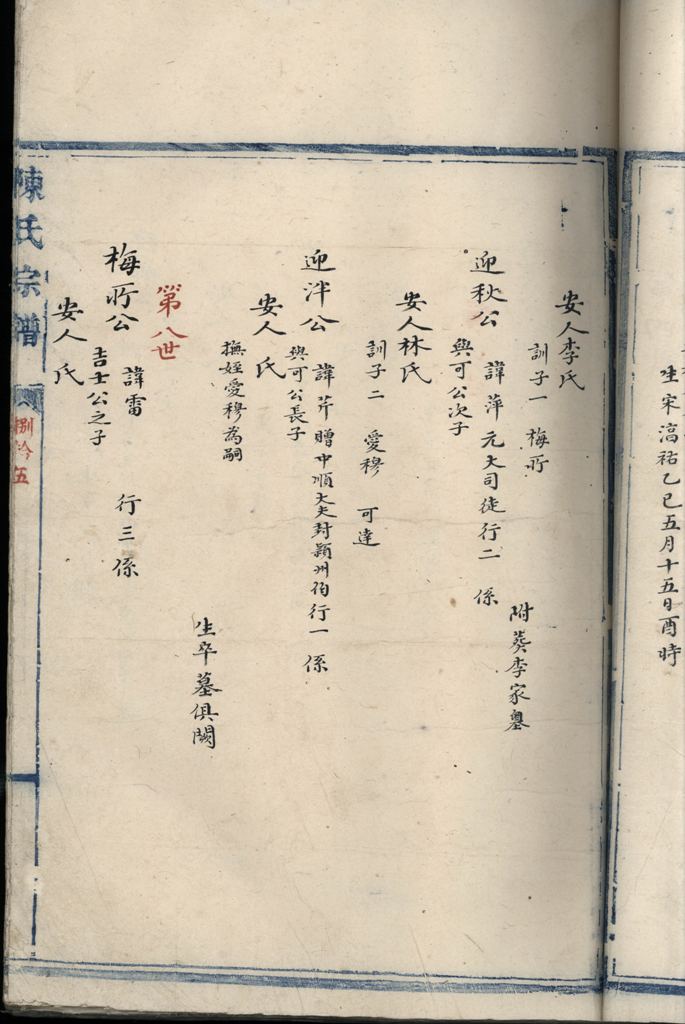 生宋淳祐乙巳五月十五日酉時
安人李氏
訓子一 梅所
附葵李家墓
迎秋公 諱萍 元大司徒行二 係
與可公次子
安人林氏
訓子二 愛穆 可達
迎泮公 諱芹 贈中順大夫封潁州伯行一係
與可公長子
安人 氏
撫姪愛穆為嗣
生卒墓俱闕
第八世
梅所公 諱雷 行三係
吉士公之子
安人 氏
陳氏宗譜
捌拾五